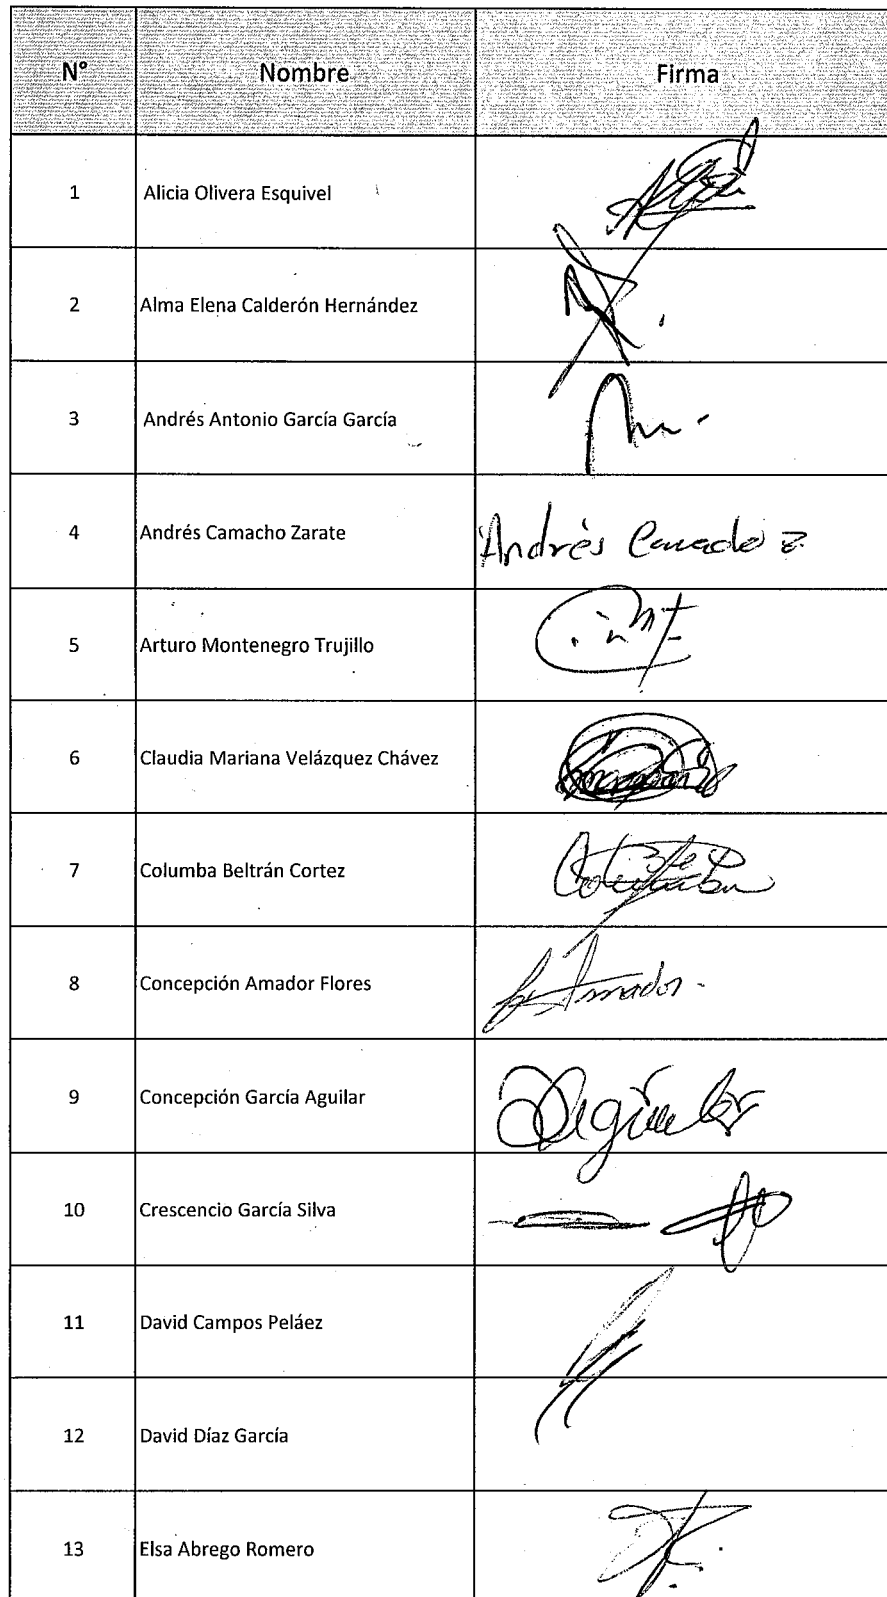 N° Nombre Firma
1 Alicia Olivera Esquivel
2 Alma Elena Calderón Hernández
3 Andrés Antonio García García
4 Andrés Camacho Zarate Andrés
5 Arturo Montenegro Trujillo
6 Claudia Mariana Velázquez Chávez
7 Columba Beltrán Cortez
8 Concepción Amador Flores Amador
9 Concepción García Aguilar Aguilar
10 Crescencio García Silva
11 David Campos Peláez
12 David Díaz García
13 Elsa Abrego Romero